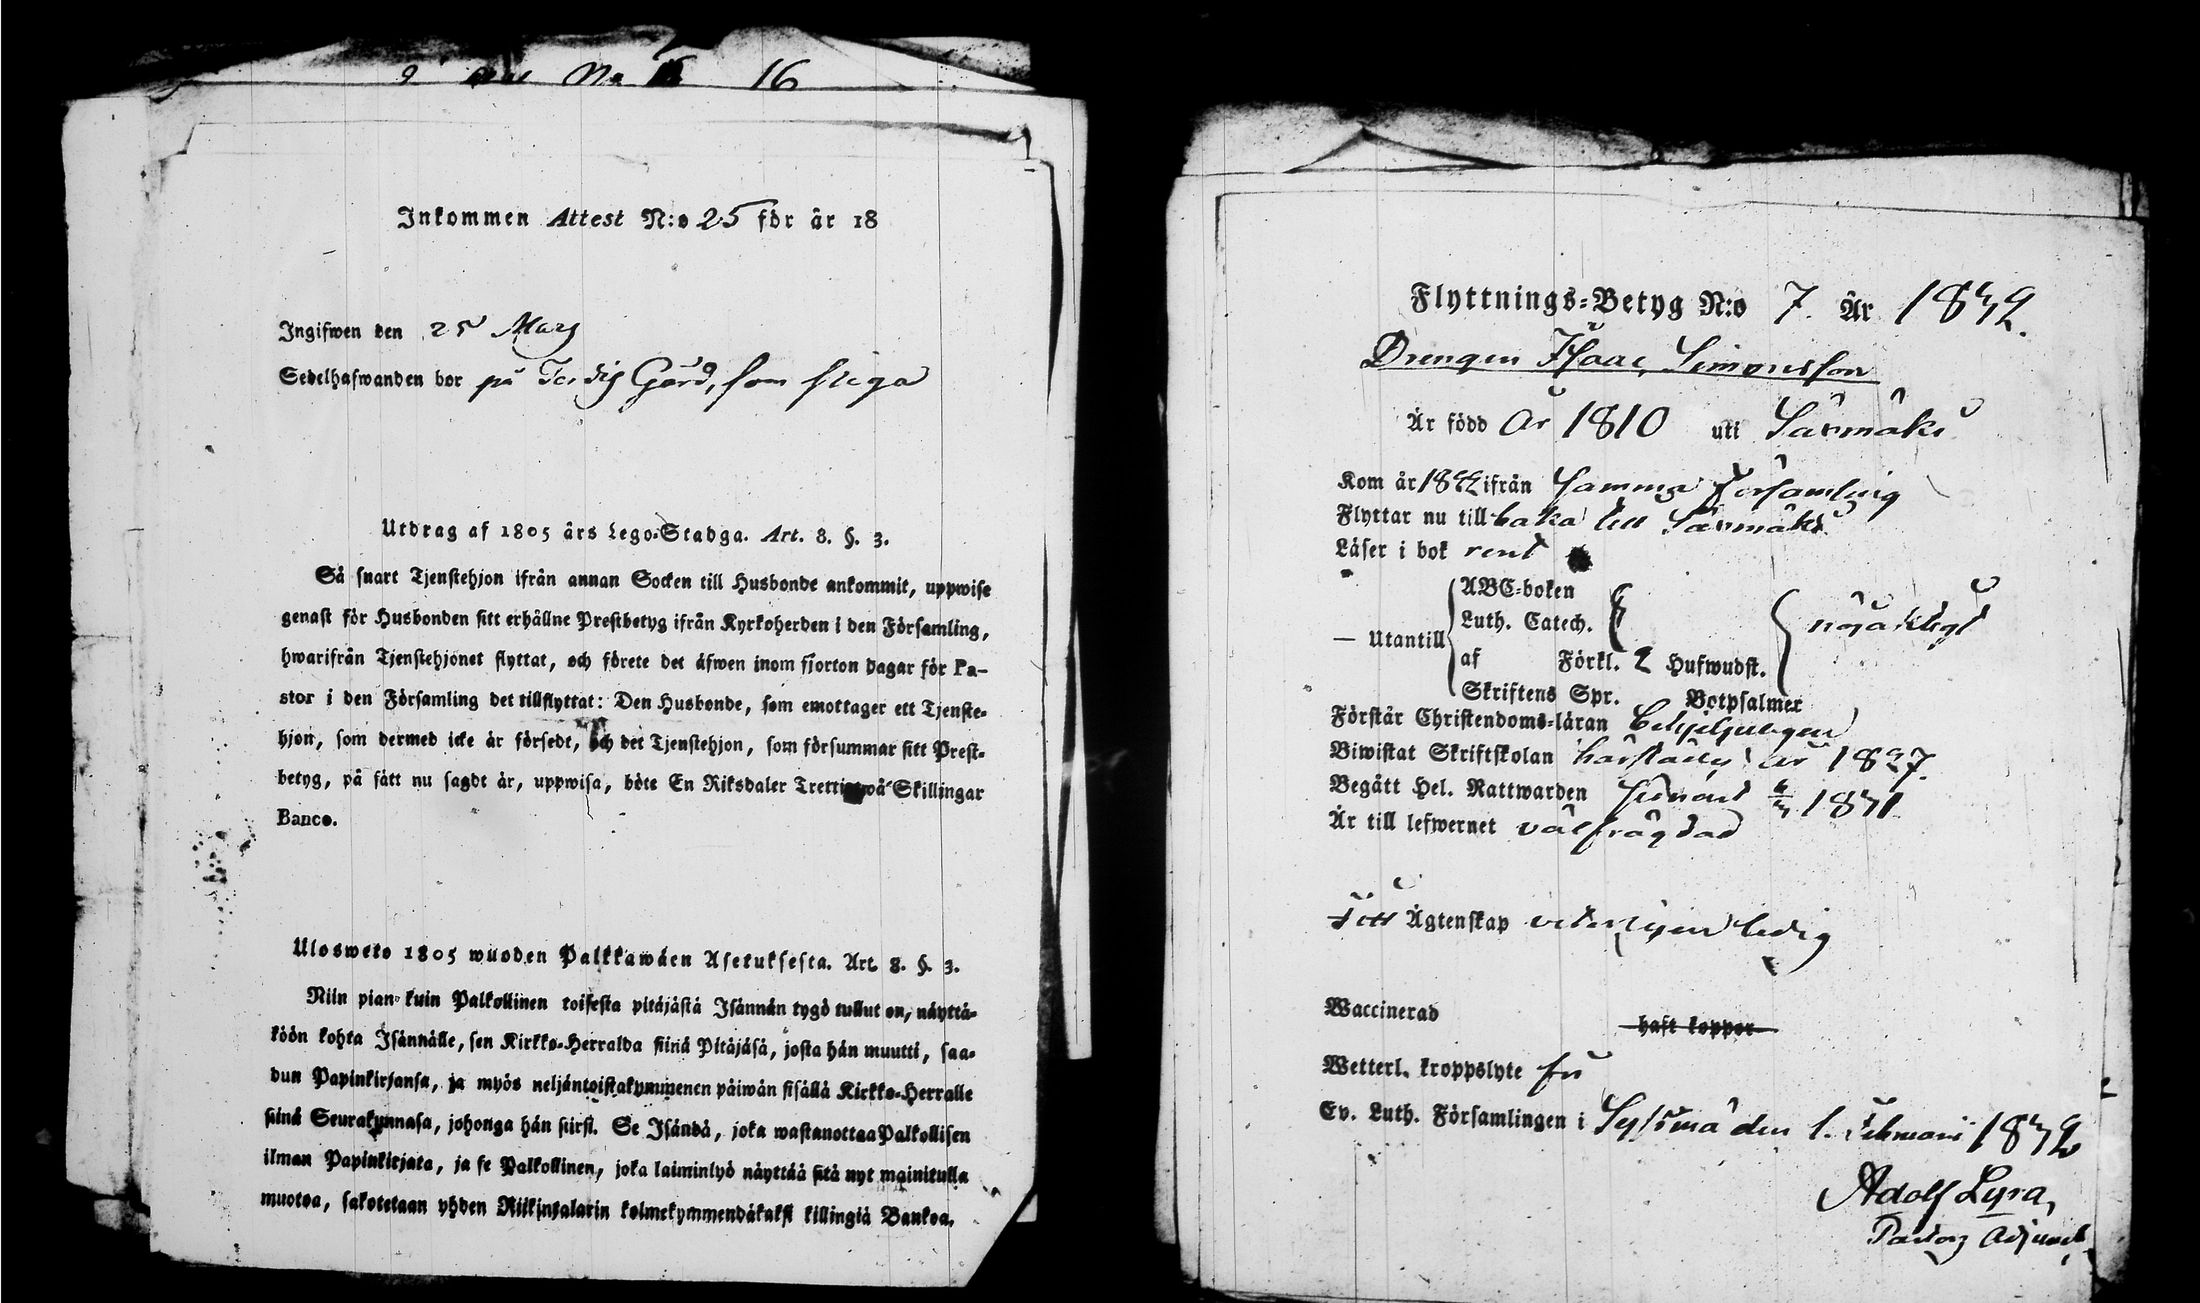 No 16
Inkommen Attest N:o 25 för år 18
Ingifwen den 25 Mars
Sedelhafwanden bor på Gård, som
Utdrag af 1805 års Lego-Stadga. Art. 8. §. 3.
Så snart Tjenstehjon ifrån annan Socken till Husbonde ankommit, uppwise
genast för Husbonden sitt erhållne Prestbetyg ifrån Kyrkoherden i den Församling,
hwarifrån Tjenstehjonet flyttat, och förete det äfwen inom fjorton dagar för Pa-
stor i den Församling det tillflyttat: Den Husbonde, som emottager ett Tjenste-
hjon, som dermed icke är försedt, och det Tjenstehjon, som försummar sitt Prest-
betyg, på sätt nu sagdt är, uppwisa, böte En Riksdaler Trettiotwå Skillingar
Banco.
Ulosweto 1805 wuoden Palkkawäen Asetuksesta. Art. 8. §. 3.
Niin pian kuin Palkollinen toisesta pitäjästä Isännän tygö tullut on, näyttä-
köön kohta Isännälle, sen Kirkko-Herralda siinä Pitäjäsä, josta hän muutti, saa-
dun Papinkirjansa, ja myös neljäntoistakymmenen päiwän sisällä Kirkko-Herralle
siinä Seurakunnasa, johonga hän siirsi. Se Isändä, joka wastanottaa Palkollisen
ilman Papinkirjata, ja se Palkollinen, joka laiminlyö näyttää sitä nyt mainitulla
muotoa, sakotetaan yhden Riikintalarin kolmekymmendäkaksi killingiä Bankoa.
Flyttnings-Betyg N:o 7. År 1832.
Drengen Isaac Simonsson
Är född År 1810 uti Säxmäki
Kom år ifrån samma Församling
Flyttar nu tillbaka till Säxmäki
Läser i bok rent
— Utantill
ABC-boken
Luth. Catech.
af Förkl. 2 Hufwudst.
Skriftens Spr. Botpsalmer
nöjaktigt
Förstår Christendoms-läran behjelpligen
Biwistat Skriftskolan härstädes år 1827.
Begått Hel. Nattwarden senast 1831.
Är till lefwernet välfrägdad
Till Ägtenskap veterligen ledig
Waccinerad haft koppor
Wetterl. kroppslyte fri
Ev. Luth. Församlingen i Sysmä den 1. Februari 1832
Adolf Lyra,
Pastors Adjunct